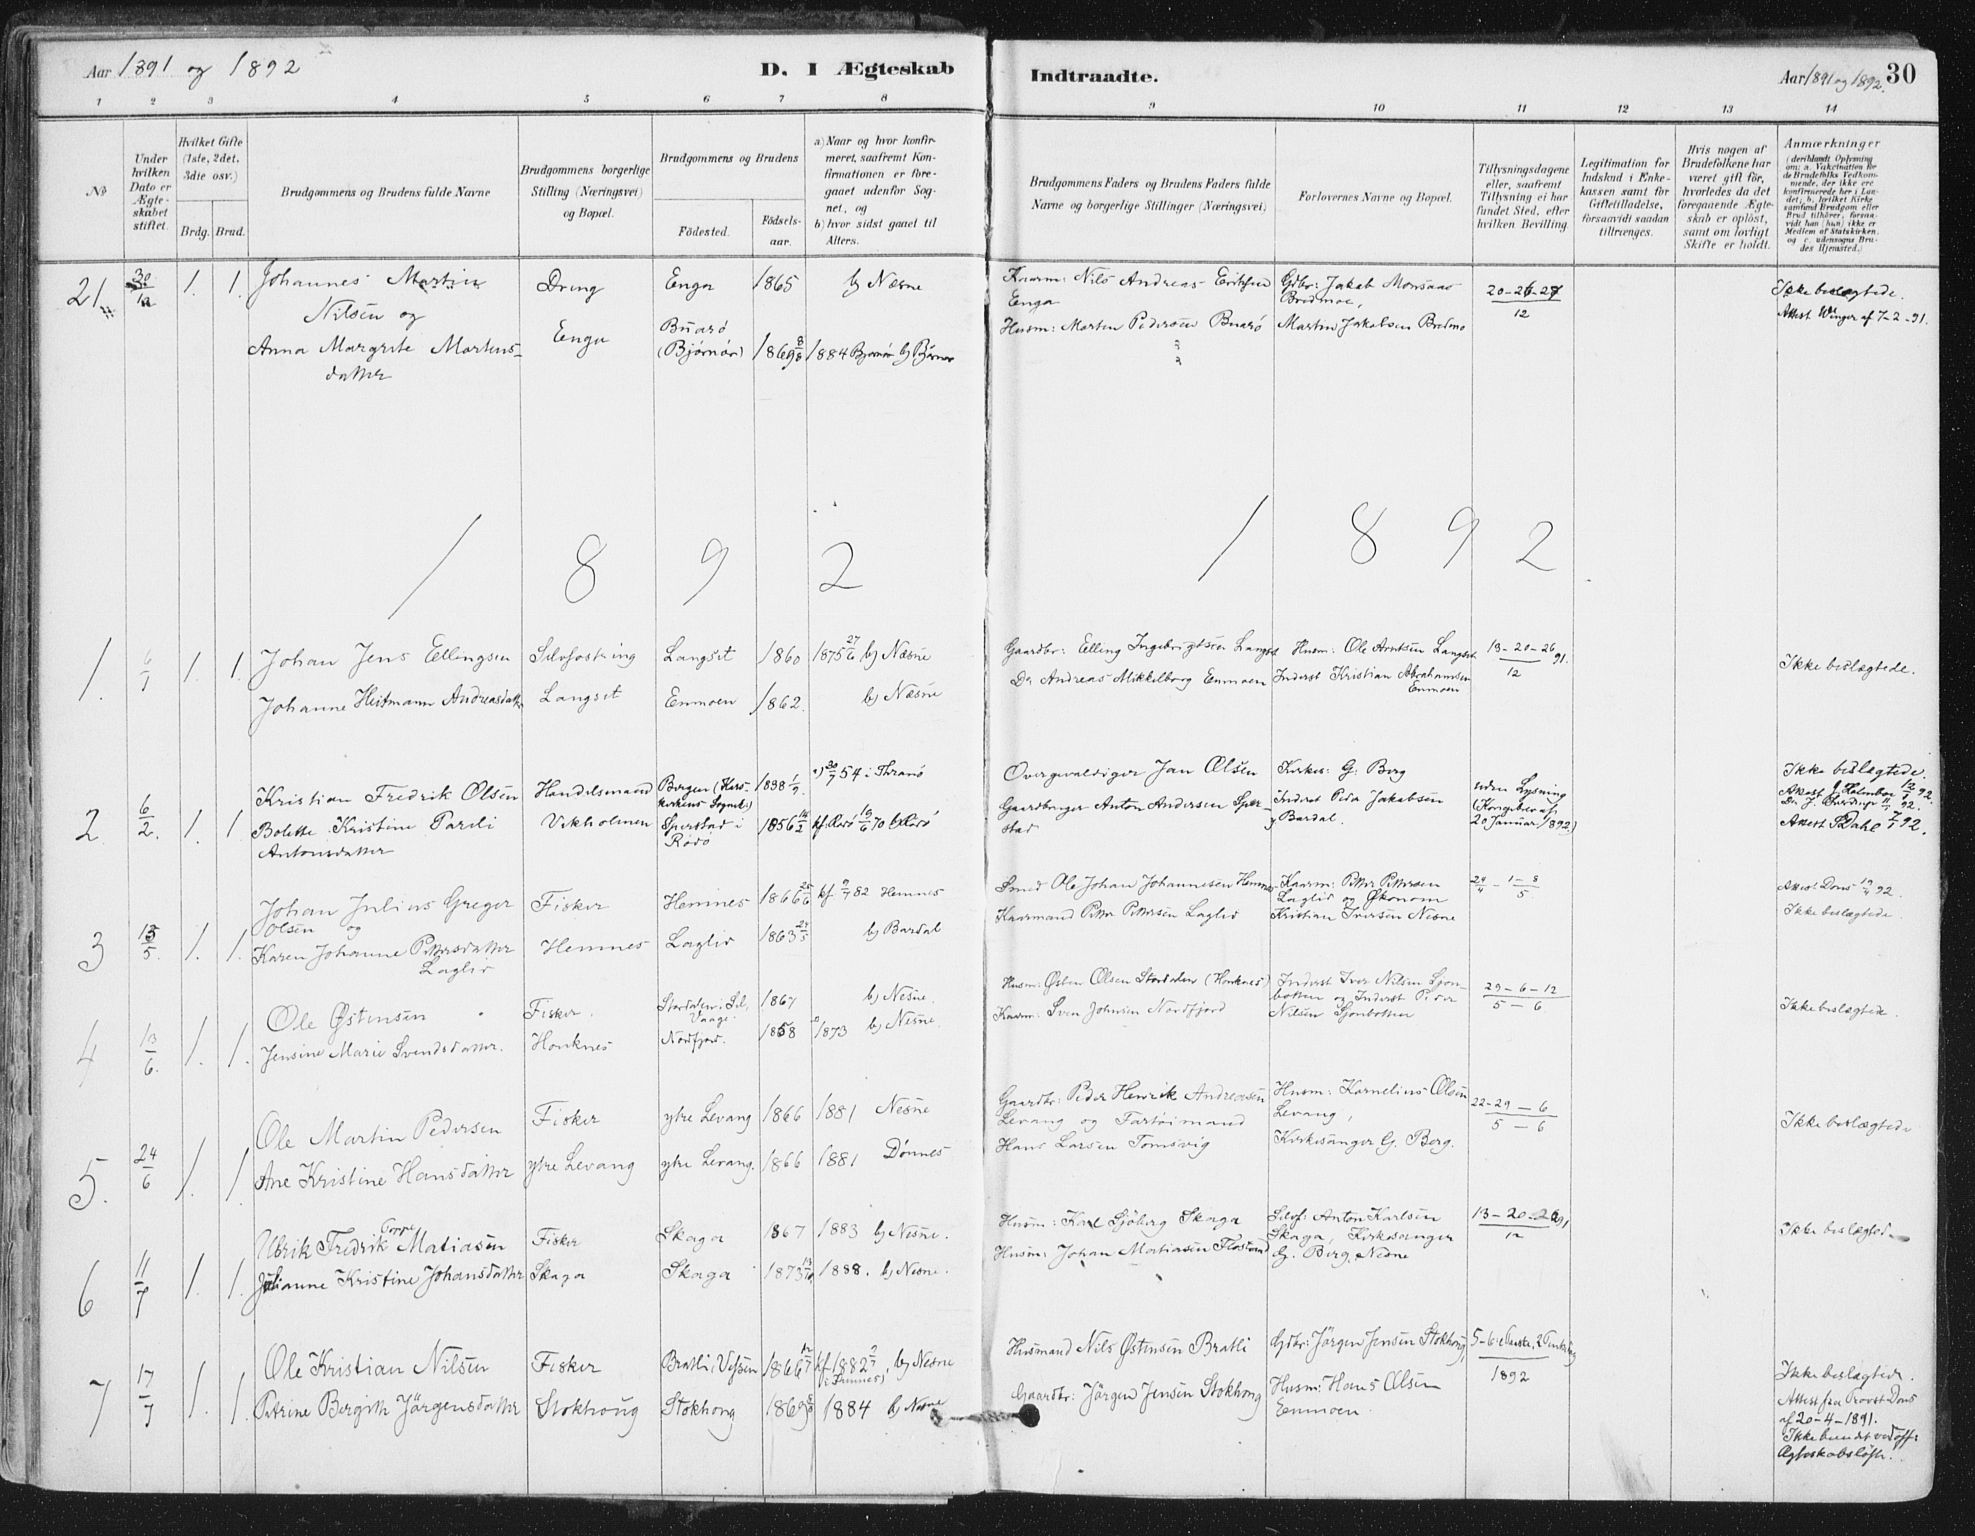 Aar 1891 og 1892
D. I Ægteskab
Indtraadte.
Aar 1891 og 1892. 30
1 2 3 4 5 6 7 8 9 10 11 12 13 14
No
Under hvilken Dato er Ægteskabet stiftet.
Hvilket Gifte (1ste, 2det, 3die osv.)
Brdg. Brud.
Brudgommens og Brudens fulde Navne
Brudgommens borgerlige Stilling (Næringsvei) og Bopæl.
Brudgommens og Brudens
Födested.
Födselsaar.
a) Naar og hvor konfirmeret, saafremt Konfirmationen er foregaaet udenfor Sognet, og
b) hvor sidst gaaet til Alters.
Brudgommens Faders og Brudens Faders fulde Navne og borgerlige Stillinger (Næringsvei)
Forlovernes Navne og Bopæl.
Tillysningsdagene eller, saafremt Tillysning ei har fundet Sted, efter hvilken Bevilling.
Legitimation for Indskud i Enkekassen samt for Giftetilladelse, forsaavidt saadan tiltrænges.
Hvis nogen af Brudefolkene har været gift för, hvorledes da det foregaaende Ægteskab er oplöst, samt om lovligt Skifte er holdt.
Anmærkninger
21. 30/12 1. 1.
Johannes Martin
Nilsen og
Anna Margrete Martens-
datter
Dreng
Enga
Enga
Buarö
(Bjørnør)
1865
1869 8/8
b) Nesne
1884 Bjørnør b) Bjørnør
Kaarm: Nils Andreas Eriksen
Enga
Husm: Morten Pedersen Buarö
Gdbr: Jakob Monsaas
Bredmoe,
Martin Jakobsen Bredmo
20-26-27
12
Ikke beslægtede.
Attest Winger af 7-2-91.
1 8 9 2
1 8 9 2
1. 6/1 1. 1.
Johan Jens Ellingsen
Johanne Heitmann Andreasdatter
Selvfostring
Langset
Langset
Enmoen
1860
1862.
1875 27/6 b) Nesne
b) Nesne
Gaardbr: Elling Ingebrigtsen Langset
Do Andreas Mikkelborg Enmoen
Husm: Ole Arntsen Langset
Inderst Kristian Abrahamsen
Enmoen
13-20-26 91.
12
Ikke beslægtede.
2 6/2. 1. 1
Kristian Fredrik Olsen
Bolette Kristine Pareli
Antonsdatter
Handelsmand
Vikholmen
Bergen (Korskirkens Sogn)
Sperstad i
Rödö
1838 1/9.
1856 14/2
a) 20/7 54 i Thranö
kf. Rödö 19/6 70 b) Rödö
Overgevaldiger Jan Olsen
Gaardbruger Anton Andersen Sperstad
Kirkes: G. Berg
Inderst Peder Jakobsen
Bardal.
uden Lysning
(Kongebrev af
20 Januar 1892)
Ikke beslægtede.
Attest J. Holmboe 12/1 92
Attest P Dahl 7/1 92.
3 15/5. 1. 1.
Johan Julius Greger
Olsen og
Karen Johanne Pettersdatter
Laglid
Fisker
Hemnes
Hemnes
Laglid
1866 25/6
1863 27/5
kf 9/7 82 Hemnes
b) Bardal
Smed Ole Johan Johannesen Hemnes
Kaarmand Petter Pettersen Laglid
Kaarm: Petter Pettersen
Laglid og Økonom
Kristian Iversen Nesne
24/4 - 1 - 8/5
Attest Dons 19/4 92.
Ikke beslægtede
4 13/6. 1. 1.
Ole Østensen
Jensine Marie Svendsdatter.
Fisker.
Honknes
Stordalen i Selvaage.
Nordfjord.
1867
1858
b) Nesne.
1873 b) Nesne.
Husm: Østen Olsen Stordalen (Honknes)
Kaarm: Sven Johnsen Nordfjord
Inderst Iver Nilsen Sjonbotten og Inderst Peder
Nilsen Sjonbotten
29-6-12
5 - 6
Ikke beslægtede.
5. 24/6 1. 1.
Ole Martin Pedersen
Ane Kristine Hansdatter
Fisker
ytre Levang
ytre Levang
ytre Levang.
1866
1866
1881 Nesne
1881 Dönnes
Gaardbr: Peder Henrik Andreasen
Levang og Fartöimand
Hans Larsen Tomsvig
Husm: Kornelius Olsen
Levang,
Kirkesanger G. Berg.
22-29 - 6
5 - 6
Ikke beslægtede
6 11/7 1. 1.
Ulrik Fredrik Matiasen
Julianne Kristine Johansdatter
Fisker
Skaga
Skaga
Skaga
1867
1873 13/10
1883 b) Nesne.
1888. b) Nesne.
Husm: Karl Sjöberg Skaga
Husm: Johan Matiasen Flostrand
Selvf: Anton Karlsen
Skaga, Kirkesanger
G. Berg, Nesne
13-20-26 91
12
Ikke beslægtede
7 17/7 1. 1.
Ole Kristian Nilsen
Petrine Bergith Jörgensdatter
Fisker
Stokhong
Bratli, Vefsen
Stokhong
1866
1869
kf 1882 2/7, b) Nesne
1884 b) Nesne
Husmand Nils Østensen Bratli
Gaardbr: Jörgen Jensen Stokhong
Gdbr: Jörgen Jensen Stokhong,
Husm: Hans Olsen
Enmoen.
1892
Ikke beslægtede.
Attest fra Provst Dons
af 20-4-1891.
Ikke bundet ved off:
Ægteskabsløfte.